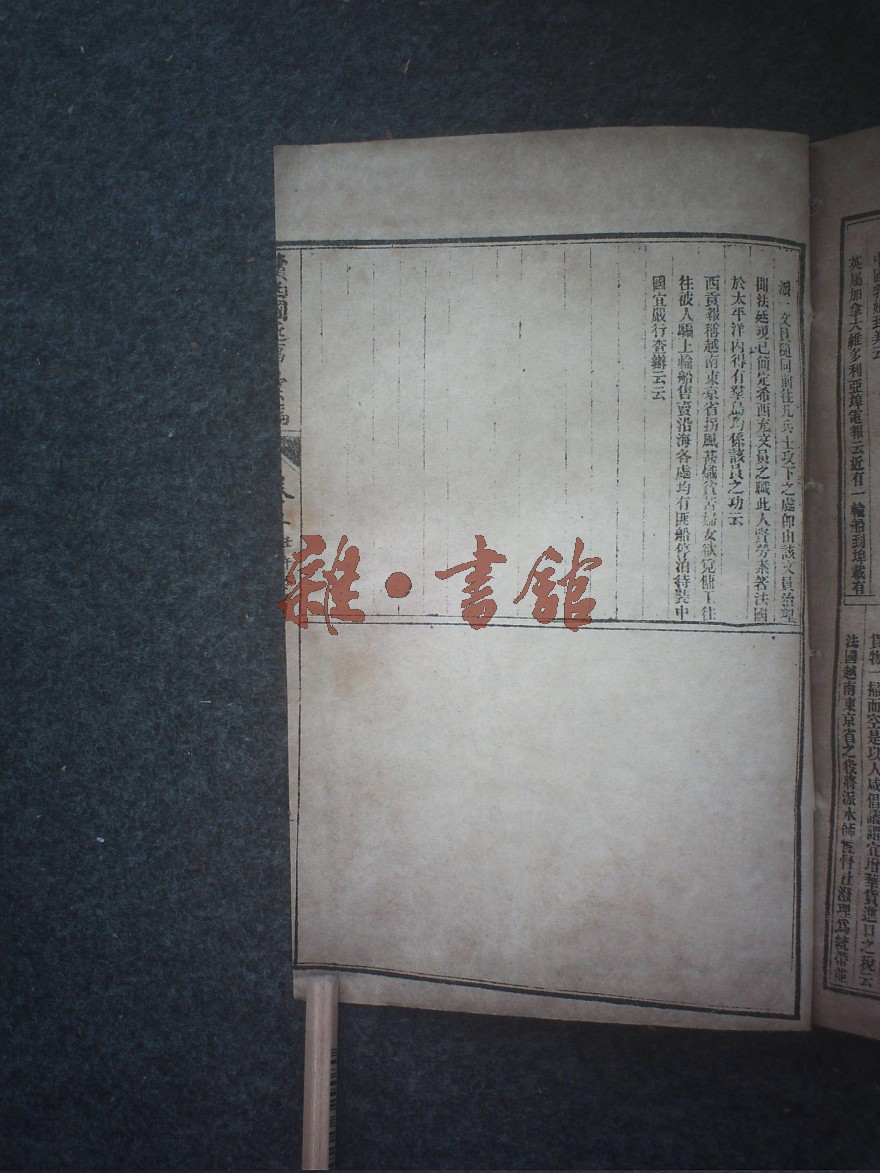 英屬加拿大維多利亞埠電報云近有一輪船到埠載有
貨物一掃而空是以人咸倡議謂宜增華貨進口之稅云
法國越南東京省之役將派水師提督杜潑理爲統帶並
派一文員隨同前往凡兵士攻下之處卽由該文員治理
聞法廷現已簡定希西充文員之職此人賢勞素著法國
於太平洋內得有羣島均係該員之功云
西貢報稱越南東京省拐風甚熾貧苦婦女欲覓傭工往
往被人騙上輪船售賣沿海各處均有匪船停泊待裝中
國宜嚴行查辦云云
雜·書館